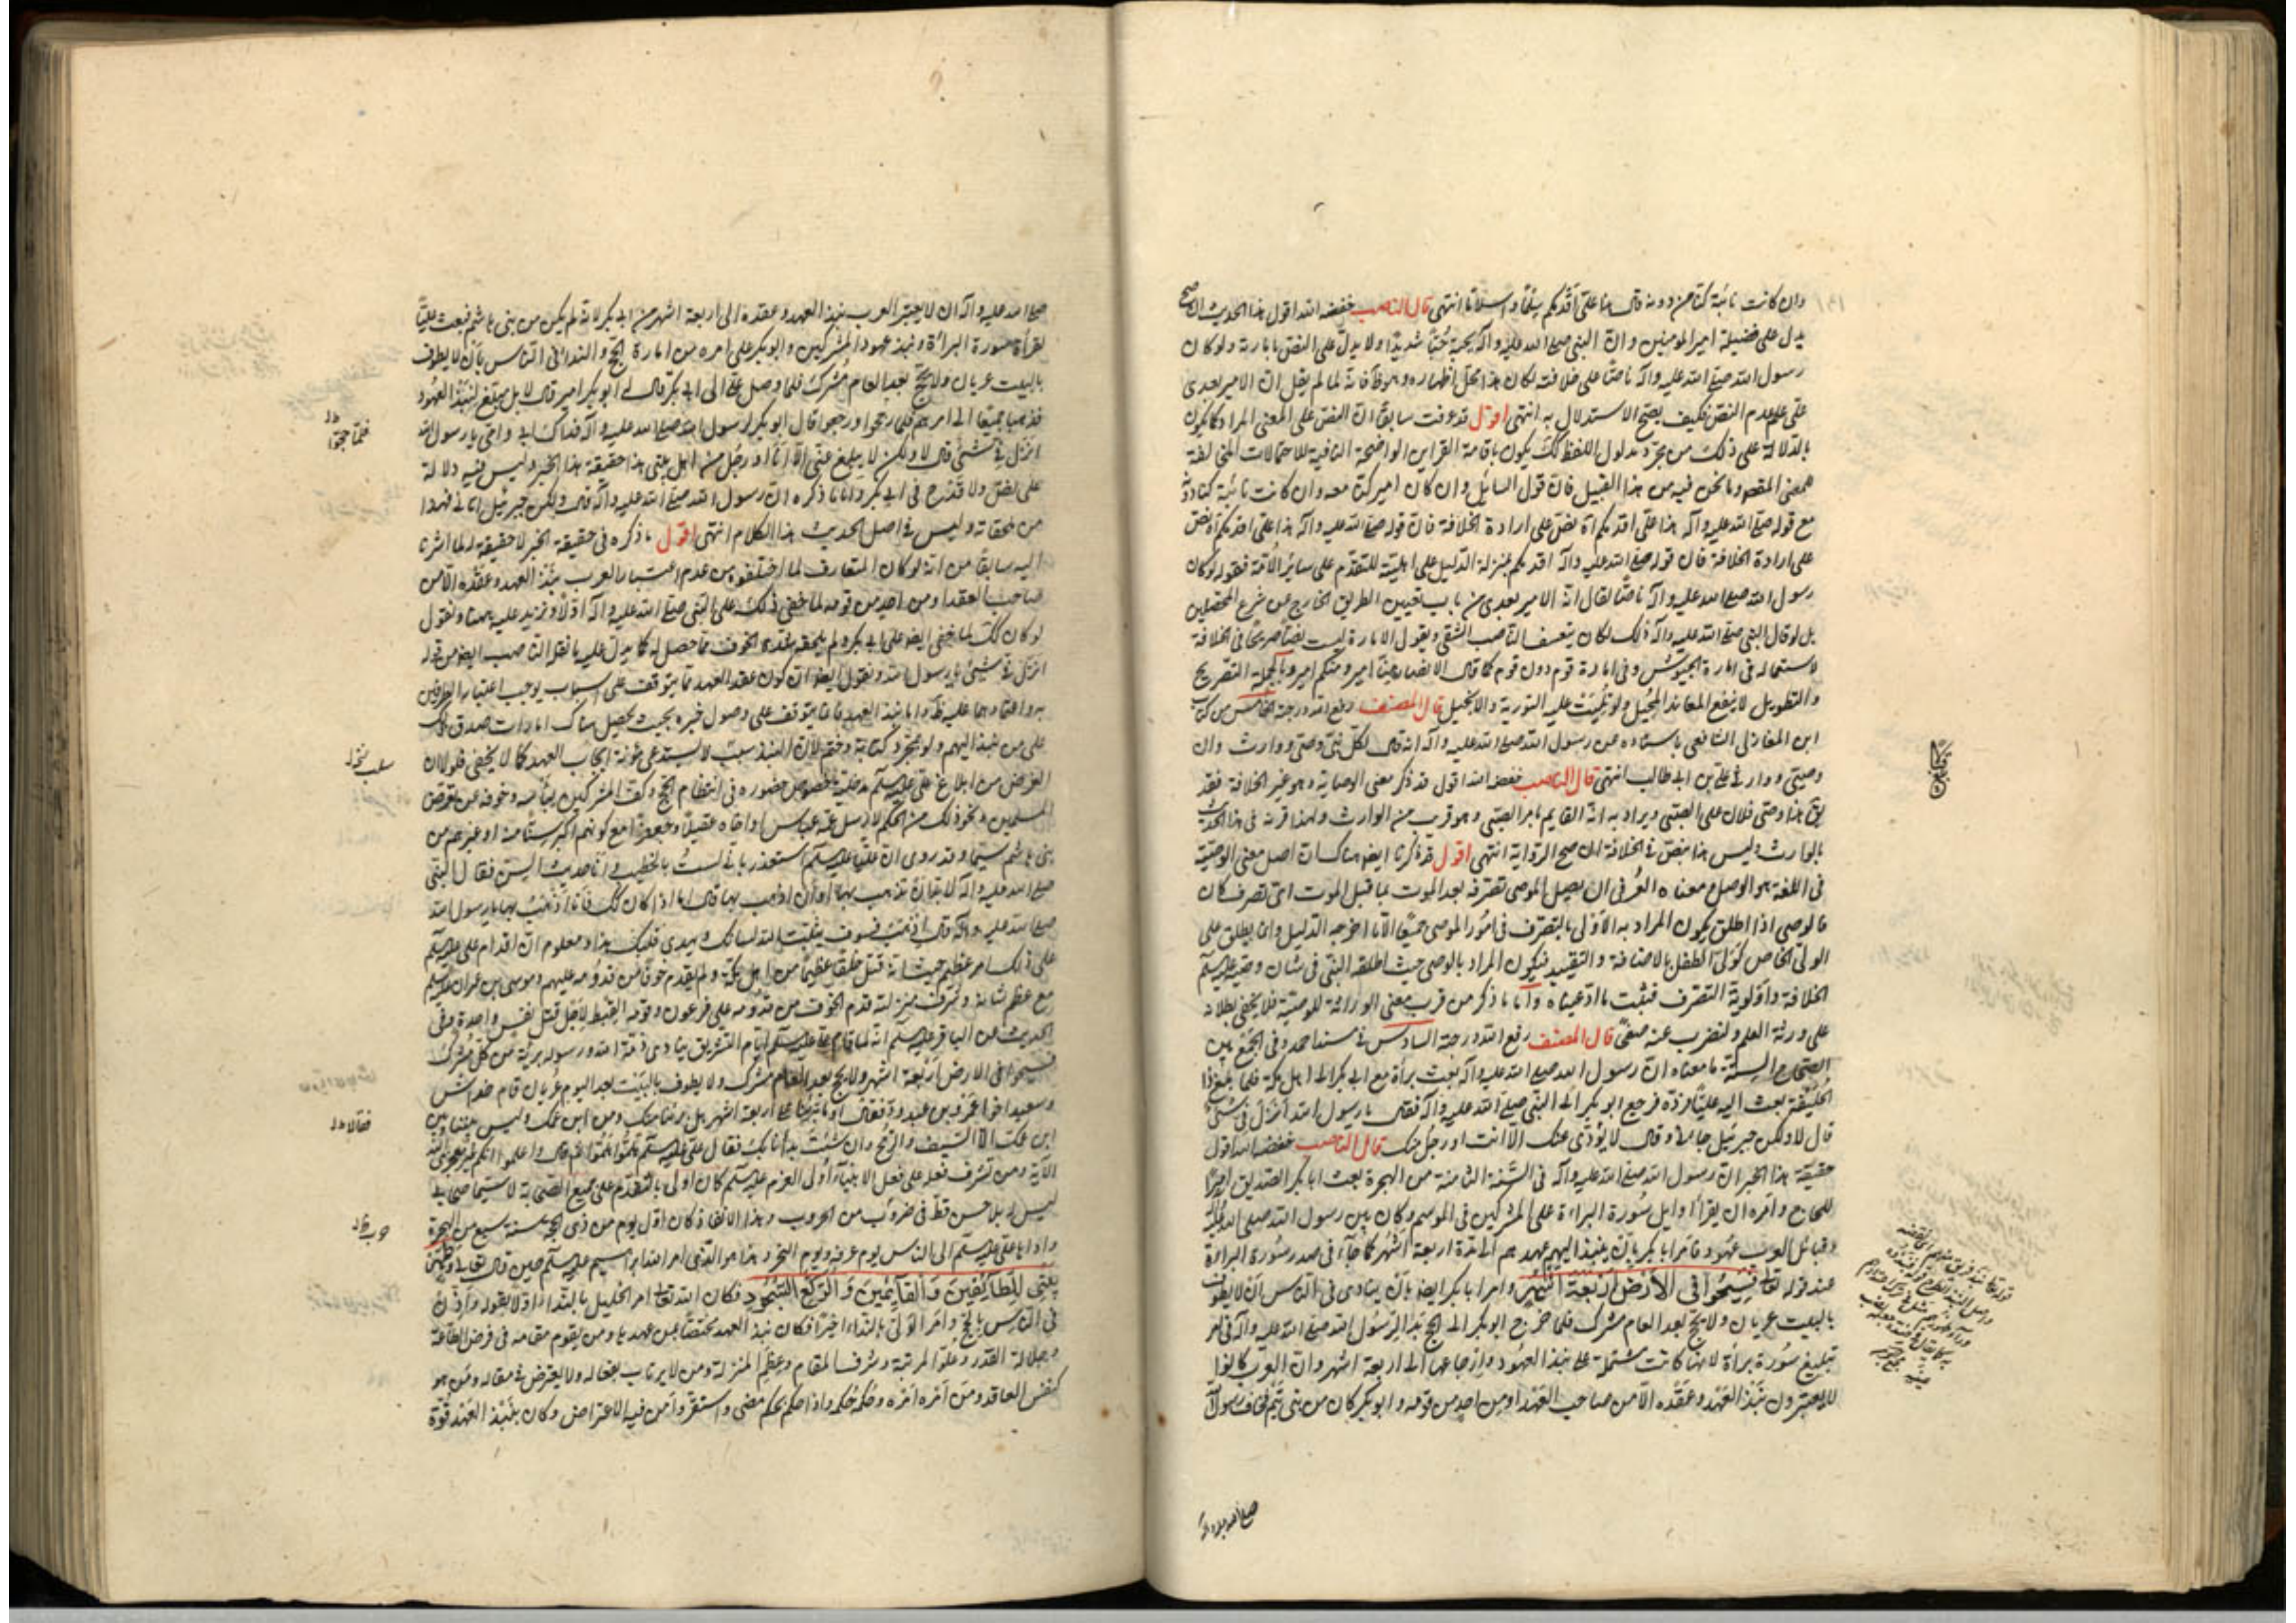 وان كانت نائبة كنا من دونه قال هذا علي أقدمكم سلماً واسلاماً انتهى قال الناصب خفضه الله اقول هذا الحديث ان صح
يدل على فضيلة امير المؤمنين وان النبي صلى الله عليه وآله يحبه حباً شديداً ولا يدل على النص بامارته ولو كان
رسول الله صلى الله عليه وآله ناصاً على خلافته لكان هذا محل اظهاره وهو ظ فانه لما لم يقل انه الامير بعدي
علم عدم النص فكيف يصح الاستدلال به انتهى اقول قد عرفت سابقاً ان النص على المعنى المراد كما يكون
بالدلالة على ذلك من مجرد مدلول اللفظ كك يكون باقامة القراين الواضحة النافية للاحتمالات المخالفة
للمعنى المقصود وما نحن فيه من هذا القبيل فان قول السائل وان كان امير كنا معه وان كانت نائبة كنا دونه
مع قوله صلى الله عليه وآله هذا علي اقدمكم اه نص على ارادة الخلافة فان قوله صلى الله عليه وآله هذا علي اقدمكم اه نص
على ارادة الخلافة فان قوله صلى الله عليه وآله اقدمكم بمنزلة الدليل على اهليته للتقدم على ساير الأمة فقوله لو كان
رسول الله صلى الله عليه وآله ناصاً لقال انه الامير بعدي من باب تعيين الطريق الخارج عن شرع المحصلين
بل لو قال النبي صلى الله عليه وآله ذلك لكان يتعسف الناصب الشقي ويقول الامارة ليست نصاً صريحاً في الخلافة
لاستعماله في امارة الجيوش وفي امارة قوم دون قوم كما قال الانصار منا امير ومنكم امير وبالجملة التصريح
والتطويل لا ينفع المعاند المحيل ولو تليت عليه التورية والانجيل قال المصنف رفع الله درجته الخامس من كتاب
ابن المغازلي الشافعي باسناده عن رسول الله صلى الله عليه وآله انه قال لكل نبي وصي ووارث وان
وصيي ووارثي علي بن ابي طالب انتهى قال الناصب خفضه الله اقول قد ذكر معنى الوصاية وهو غير الخلافة فقد
يق هذا وصي فلان على الصبي ويراد به انه القايم بامر الصبي وهو قريب من الوارث ولهذا قرنه في هذا الحديث
بالوارث وليس هذا بنص في الخلافة ان صح الرواية انتهى اقول قد ذكرنا ايضا هناك ان اصل معنى الوصية
في اللغة هو الوصل ومعناه العرفي ان يصل الموصي تصرفه بعد الموت بما قبل الموت اي تصرف كان
فالوصي اذا اطلق يكون المراد به الأولى بالتصرف في امور الموصي جميعاً الا ما اخرجه الدليل وان يطلق على
الولي الخاص كولي الطفل بالاضافة والتقييد فيكون المراد بالوصي حيث اطلقه النبي في شان وصيه عليه السلم
الخلافة واولوية التصرف فيثبت ما ادعيناه وأما ما ذكر من قرب معنى الوراثة للوصية فلا يخفى بطلانه
على ورثة العلم ولنضرب عنه صفحاً قال المصنف رفع الله درجته السادس في مسند احمد وفي الجمع بين
الصحاح الستة ما معناه ان رسول الله صلى الله عليه وآله بعث براءة مع ابي بكر الى اهل مكة فلما بلغ ذا
الحليفة بعث اليه علياً فرده فرجع ابو بكر الى النبي صلى الله عليه وآله فقال يا رسول الله انزل في شيء
قال لا ولكن جبرئيل جاءني وقال لا يؤدي عنك الا انت او رجل منك قال الناصب خفضه الله اقول
حقيقة هذا الخبر ان رسول الله صلى الله عليه وآله في السنة الثامنة من الهجرة بعث ابا بكر الصديق اميراً
للحاج وامره ان يقرأ اوايل سورة البراءة على المشركين في الموسم وكان بين رسول الله صلى الله عليه وآله
وقبائل العرب عهود فأمر ابا بكر بان ينبذ اليهم عهدهم الى مدة اربعة اشهر كما جاء في صدر سورة البراءة
عند قوله تعالى فسيحوا في الأرض أربعة أشهر وامر ابا بكر ايضا بان ينادي في الناس ان لا يطوف
بالبيت عريان ولا يحج بعد العام مشرك فلما خرج ابو بكر الى الحج بدا لرسول الله صلى الله عليه وآله في امر
تبليغ سورة براءة لانها كانت مشتملة على نبذ العهود وارجاعها الى اربعة اشهر وان العرب كانوا
لا يعتبرون نبذ العهد وعقده الا من صاحب العهد او من احد من قومه وابو بكر كان من بني تيم فخاف رسول الله
صلى الله عليه وآله
صلى الله عليه وآله ان لا يعتبر العرب نبذ العهد وعقده الى اربعة اشهر من ابي بكر لانه لم يكن من بني هاشم فبعث علياً
لقراءة سورة البراءة ونبذ عهود المشركين وابو بكر على امره من امارة الحج والنداء في الناس بأن لا يطوف
بالبيت عريان ولا يحج بعد العام مشرك فلما وصل علي الى ابي بكر قال له ابو بكر امير قال لا بل مبلغ لنبذ العهود
فذهبا جميعاً الى امرهم فلما حجوا ورجعوا قال ابو بكر لرسول الله صلى الله عليه وآله فداك ابي وامي يا رسول الله
انزل في شيء قال لا ولكن لا يبلغ عني الا انا او رجل من اهل بيتي هذا حقيقة هذا الخبر وليس فيه دلالة
على نص ولا قدح في ابي بكر واما ما ذكره ان رسول الله صلى الله عليه وآله قال ولكن جبرئيل اتاني فهذا
من ملحقاته وليس في اصل الحديث هذا الكلام انتهى اقول ما ذكره في حقيقة الخبر لا حقيقة له لما اشرنا
اليه سابقاً من انه لو كان المتعارف لما اختلقوه من عدم اعتبار العرب نبذ العهد وعقده الا من
صاحب العقد او من احد من قومه لما خفي ذلك على النبي صلى الله عليه وآله اولاً ونزيد عليه ههنا ونقول
لو كان كك لما خفي ايضا على ابي بكر ولم يلحقه الخوف مما حصل له كما يدل عليه ما نقل الناصب ايضا من قوله
انزل في شيء يا رسول الله ونقول ايضا ان كون عقد العهد مما يتوقف على اسباب يوجب اعتبار الطرفين
به واعتمادهما عليه ظ واما نبذ العهد فانما يتوقف على وصول خبره بحيث يحصل هناك امارات صدق ذلك
على من نبذ اليهم ولو بمجرد كتابة وختم لان النبذ سلب لا يستدعي مؤنة ايجاب العهد كما لا يخفى فلولا ان
الغرض من ابلاغ علي عليه السلم مدخلية خصوص حضوره في انتظام الحج وكف المشركين بيأسه وخوفه عن تعرض
المسلمين ونحو ذلك من الحكم لارسل عمه عباس واخاه عقيلاً وجعفراً مع كونهم اكبر سناً منه او غيرهم من
بني هاشم سيما وقد روى ان علياً عليه السلم استعذر باني لست بالخطيب وانا حديث السن فقال النبي
صلى الله عليه وآله لا بد ان تذهب بها او ان اذهب بها قال اما اذا كان كك فانا اذهب بها يا رسول الله
صلى الله عليه وآله قال اذهب فسوف يثبت الله لسانك ويهدي قلبك هذا ومعلوم ان اقدام علي عليه السلم
على ذلك امر عظيم حيث انه قتل خلقاً عظيماً من اهل مكة ولم يقدم خوفاً من قدومه عليهم وموسى بن عمران عليه السلم
مع عظم شانه وشرف منزلته قدم الخوف من قدومه على فرعون وقومه القبط لاجل قتل نفس واحدة وفي
الحديث عن الباقر عليه السلم انه لما قام علي عليه السلم ايام التشريق ينادي ذمة الله ورسوله بريئة من كل مشرك
فسيحوا في الارض أربعة اشهر ولا يحج بعد العام مشرك ولا يطوف بالبيت بعد اليوم عريان قام خداش
وسعيد اخوا عمرو بن عبد ود فقال او ما تيرنا على اربعة اشهر بل برئنا منك ومن ابن عمك وليس بيننا وبين
ابن عمك الا السيف والرمح وان شئت بدأنا بك فقال علي عليه السلم هلموا هلموا ثم قال واعلموا انكم غير معجزي الله
الآية ومن تشرف فعله على فعل الانبياء أولى العزم عليه السلم كان اولى بالتقدم على جميع الصحابة لا سيما صحابي
ليس له بلاء حسن قط في ضروب من الحروب وهذا الانفاذ كان اول يوم من ذي الحجة سنة تسع من الهجرة
واداها علي عليه السلم الى الناس يوم عرفة ويوم النحر وهذا هو الذي امر الله ابراهيم عليه السلم حين قال تعالى وطهر
بيتي للطآئفين والقآئمين والركع السجود فكان الله تعالى امر الخليل بالنداء اولاً بقوله واذن
في الناس بالحج وأمر الولي بالنداء اخيراً فكان نبذ العهد مختصاً بمن عهد بها ومن يقوم مقامه في فرض الطاعة
وجلالة القدر وعلو المرتبة وشرف المقام وعظم المنزلة ومن لا يرتاب بفعاله ولا يعترض في مقاله ومن هو
كنفس العاقد ومن أمره أمره وحكمه حكمه واذا حكم بحكم مضى واستقر وأمن فيه الاعتراض وكان بنبذ العهد قوة
فلما حجوا
سلب
فقالا
حروب